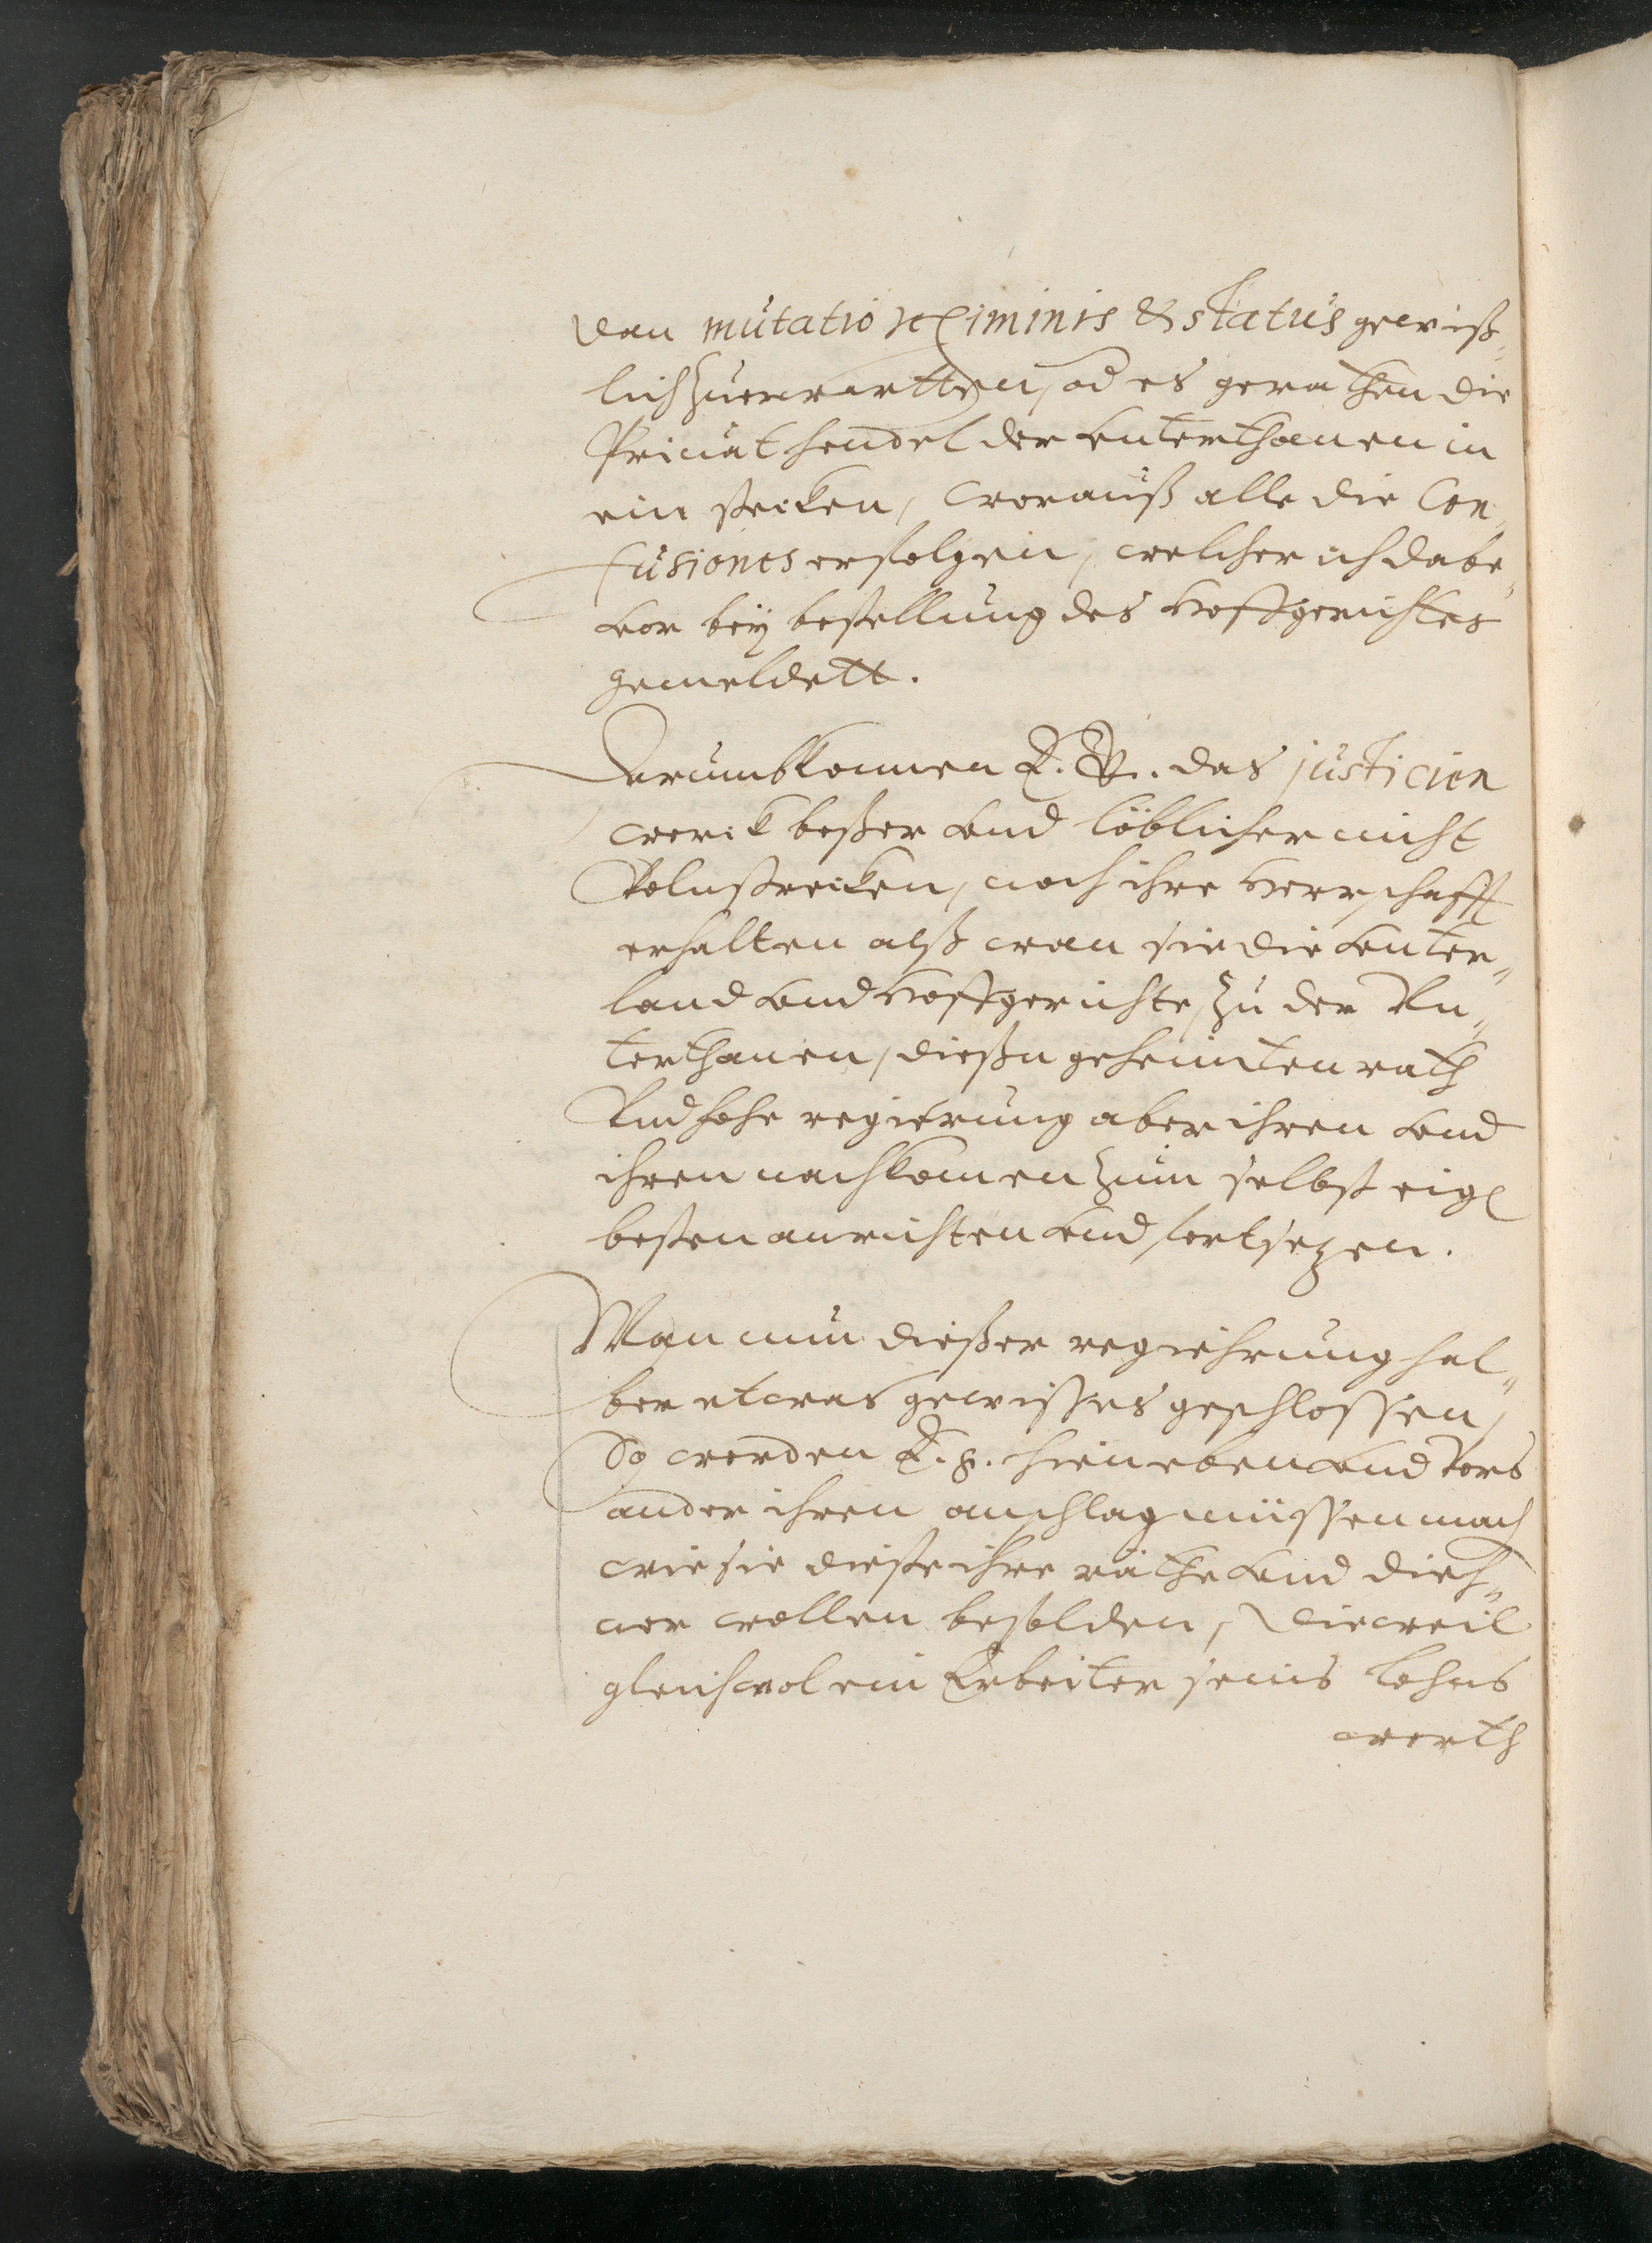 dan mutatio regiminis & status gewiß„
lich zuerwartten, od es gerathen die
Privat hendel der vnterthanen in
ein stecken, worauß alle die Con„
fusiones erfolgen, welcher ich dabe„
vor bey bestellung des Hoffgerichtes
gemeldett.
Darumb können E. G. das justicien
werck beßer vnd löblicher nicht
Volnstrecken, noch ihre Herrschafft
erhalten alß wan sie die vnter„
land vnd Hoffgerichte, zu der Vn„
terthanen, dießn geheimten rath
Vnd hohe regierung aber ihren vnd
ihren nachkomen zum selbst eig
besten anrichten vnd fortsezen.
Wan nun dießer regiehrung hal„
ber etwas gewisses geschlossen,
So werden E. g. hieneben vnd Vors
ander ihren anschlag müssen mach
wie sie dieße ihre räthe vnd dieh„
ner wollen besolden, dieweil
gleichwol ein Arbeiter seins lohns
werth